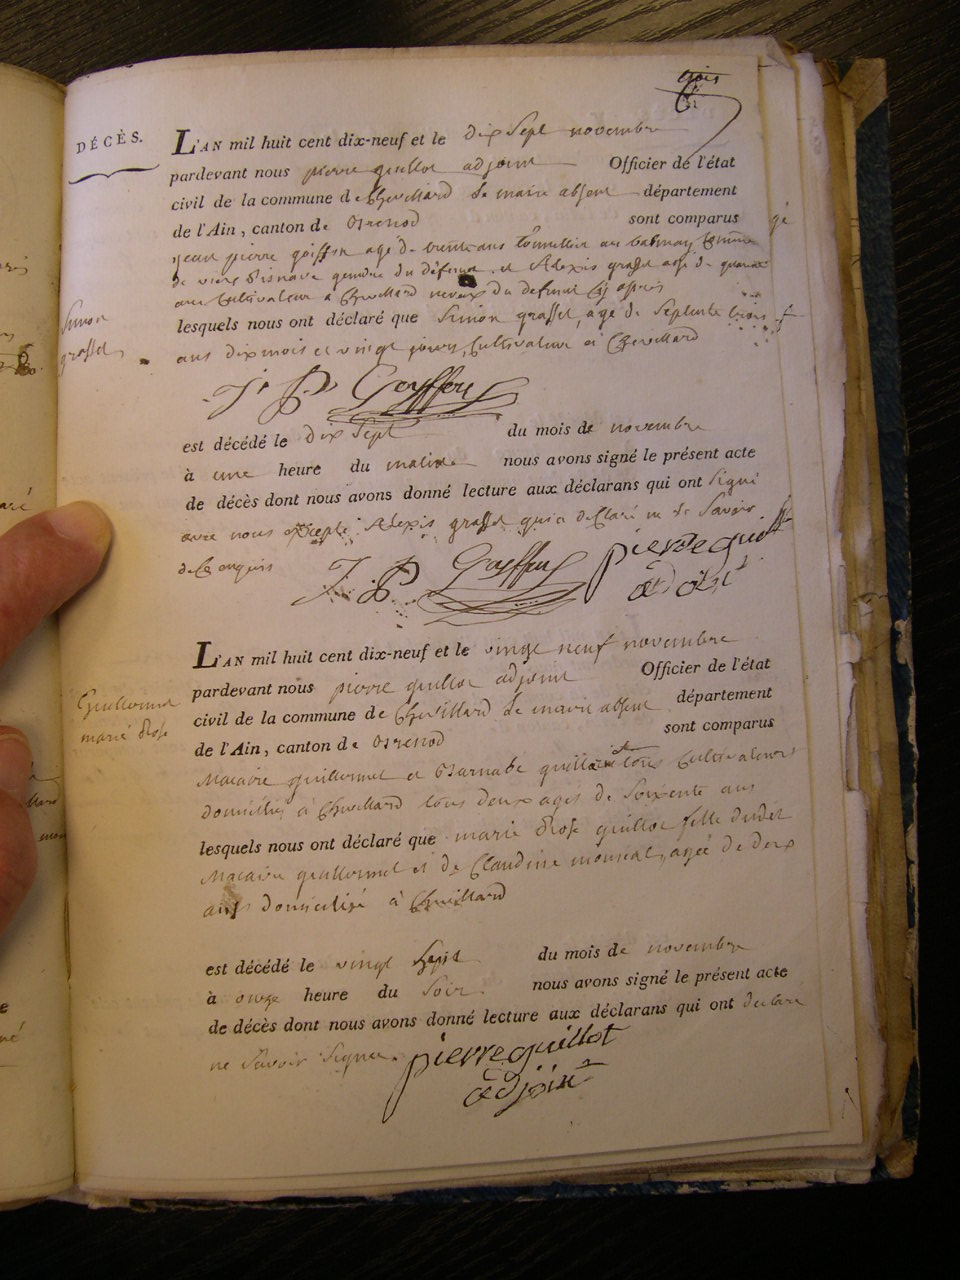 trois
DÉCÈS.
L'AN mil huit cent dix-neuf et le dix Sept novembre
pardevant nous pierre guillot adjoint Officier de l'état
civil de la commune de Chevillard le maire absent département
de l'Ain, canton de Brenod sont comparus
jean pierre goiffon agé de trente ans au commune
de vieux d'isnave gendre du défunt et Alexis grassel agé de quarante
ans Cultivateur à Chevillard neveux du defunt Cy après
Simon
grassel
lesquels nous ont déclaré que Simon grassel, agé de Septente trois
ans dix mois et vingt jours, Cultivateur à Chevillard
J. P. Goyffon
est décédé le dix Sept du mois de novembre
à une heure du matin nous avons signé le présent acte
de décès dont nous avons donné lecture aux déclarans qui ont Signé
avec nous excepté Alexis grassel qui a déClaré ne le Savoir
de Ce enquis
J. P. Goyffon pierre guillot
adjoint
L'AN mil huit cent dix-neuf et le vingt neuf novembre
pardevant nous pierre guillot adjoint Officier de l'état
Guillermet
marie Rose
civil de la commune de Chevillard le maire absent département
de l'Ain, canton de Brenod sont comparus
Macaire guillermet et Barnabé guillot tous Cultivateurs
domiciliés à Chevillard tous deux agés de Soixente ans
lesquels nous ont déclaré que marie Rose guillot fille dudit
Macaire guillermet et de Claudine agée de deux
ans domicilié à Chevillard
est décédé le vingt Sept du mois de novembre
à onze heure du Soir nous avons signé le présent acte
de décès dont nous avons donné lecture aux déclarans qui ont declaré
ne Savoir Signer.
pierre guillot
adjoint